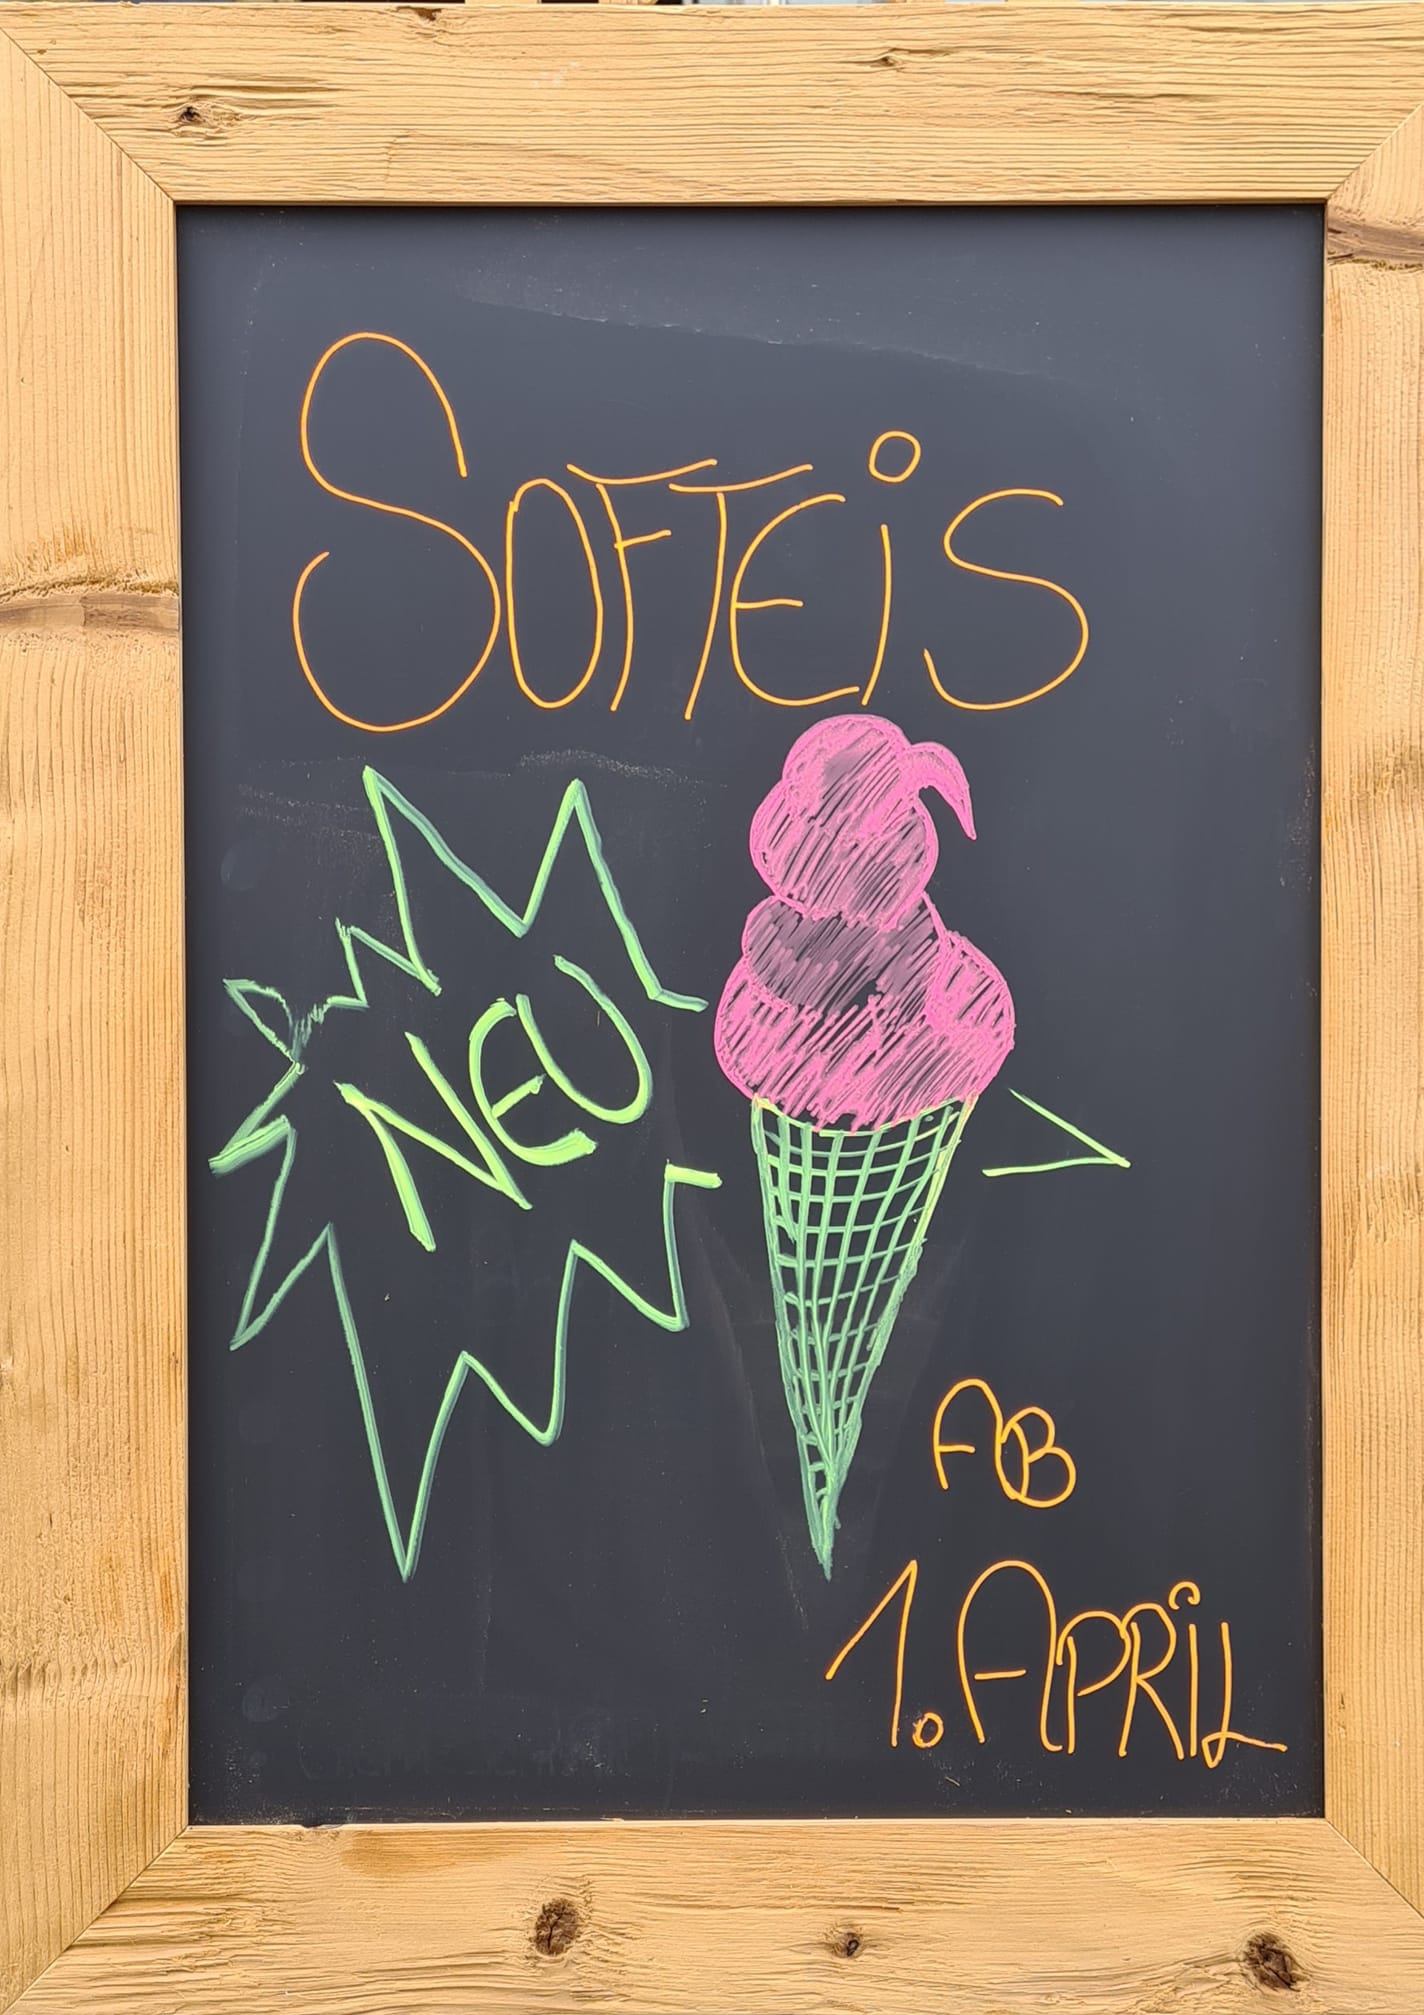 SOFTEiS
NEU
AB
1. APRiL